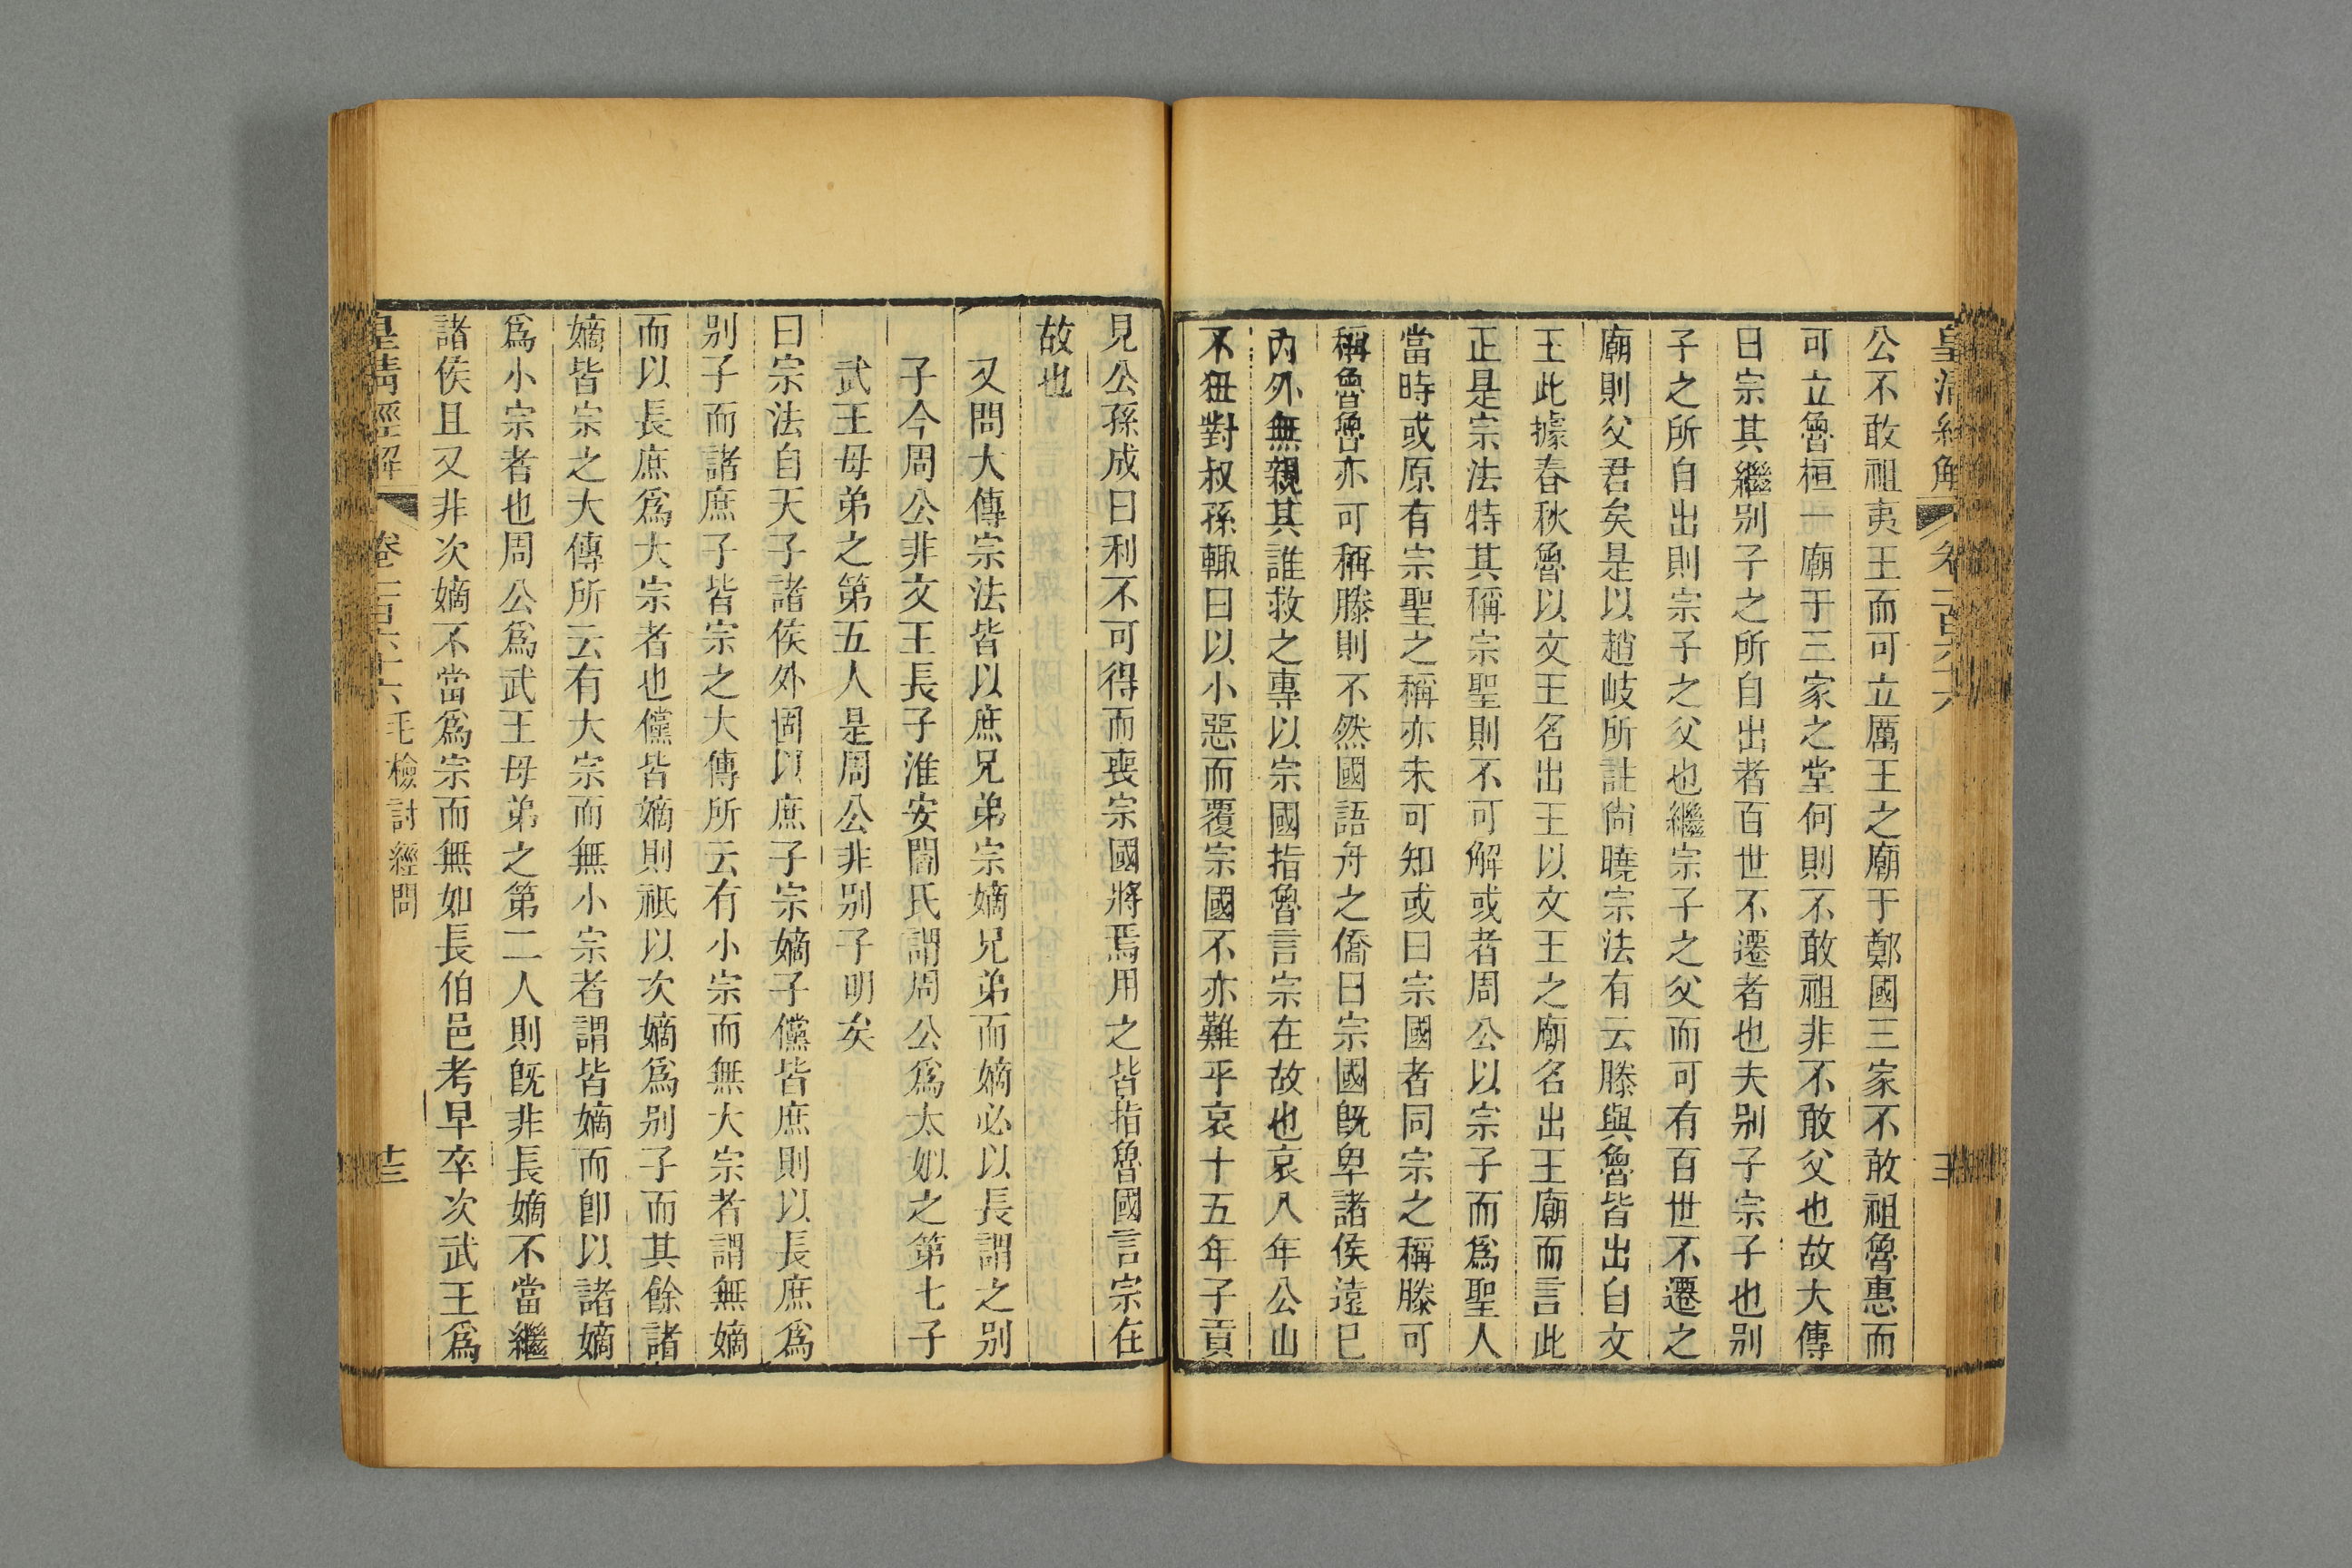 公不敢祖夷王而可立厲王之廟于鄭國三家不敢祖魯惠而
可立魯桓一廟于三家之堂何則不敢祖非不敢父也故大傳
曰宗其繼别子之所自出者百世不遷者也夫别子宗子也别
子之所自出則宗子之父也繼宗子之父而可有百世不遷之
廟則父君矣是以趙岐所註尙曉宗法有云滕與魯皆出自文
王此據春秋魯以文王名出王以文王之廟名出王廟而言此
正是宗法特其稱宗聖則不可解或者周公以宗子而爲聖人
當時或原有宗聖之稱亦未可知或曰宗國者同宗之稱滕可
稱魯魯亦可稱滕則不然國語舟之僑曰宗國旣卑諸侯遠已
內外無親其誰救之專以宗國指魯言宗在故也哀八年公山
不狃對叔孫輒曰以小惡而覆宗國不亦難乎哀十五年子貢
見公孫成曰利不可得而喪宗國將焉用之皆指魯國言宗在
故也
又問大傳宗法皆以庶兄弟宗嫡兄弟而嫡必以長謂之别
子今周公非文王長子淮安閻氏謂周公爲太姒之第七子
武王母弟之第五人是周公非别子明矣
曰宗法自天子諸侯外固以庶子宗嫡子儻皆庶則以長庶爲
别子而諸庶子皆宗之大傳所云有小宗而無大宗者謂無嫡
而以長庶爲大宗者也儻皆嫡則祇以次嫡爲别子而其餘諸
嫡皆宗之大傳所云有大宗而無小宗者謂皆嫡而卽以諸嫡
爲小宗者也周公爲武王母弟之第二人則旣非長嫡不當繼
諸侯且又非次嫡不當爲宗而無如長伯邑考早卒次武王爲
皇淸經解 卷一百六十六 毛檢討經問 十三